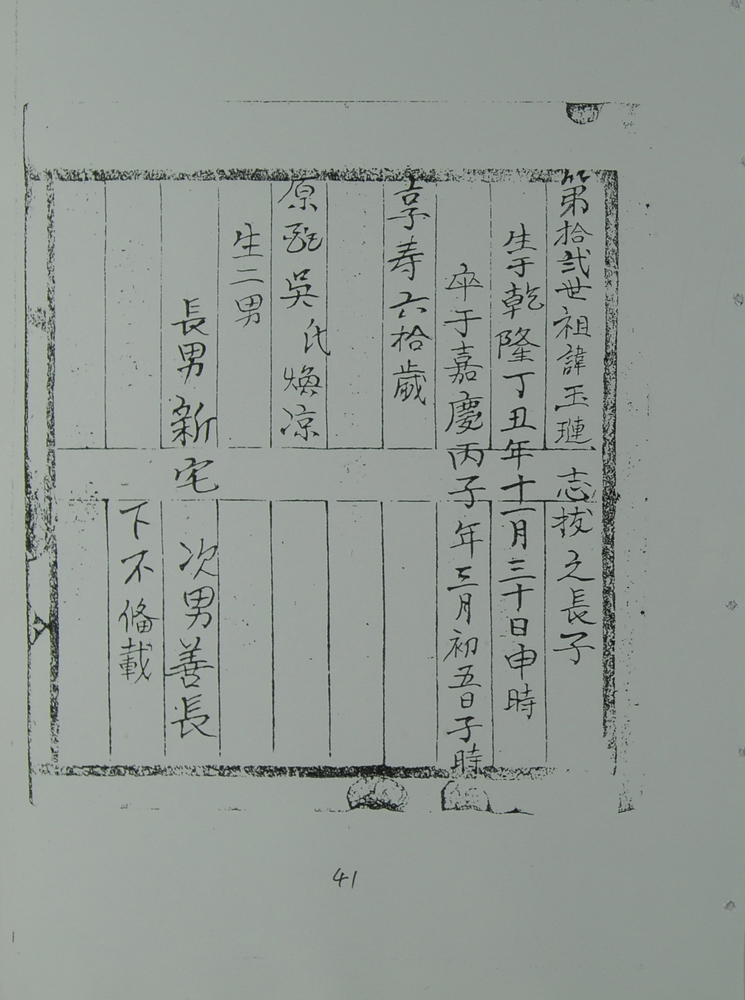 第拾弍世祖諱玉璉 志拔之長子
生于乾隆丁丑年十一月三十日申時
卒于嘉慶丙子年三月初五日子時
享寿六拾歲
原配吳氏煥凉
生二男
長男新宅 次男善長
下不俻載
41